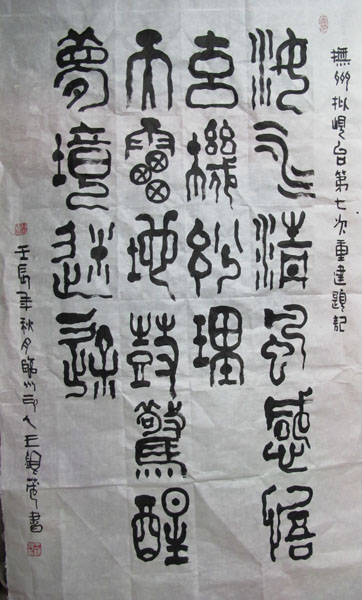 撫州拟峴台第七次重建題記
汝水清風感悟
玄機玅理
天雷地鼓驚醒
夢境迷
壬辰年秋月臨川 人王 書